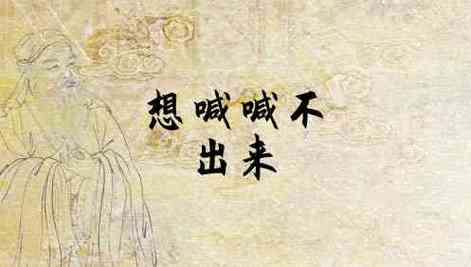 想喊喊不
出来